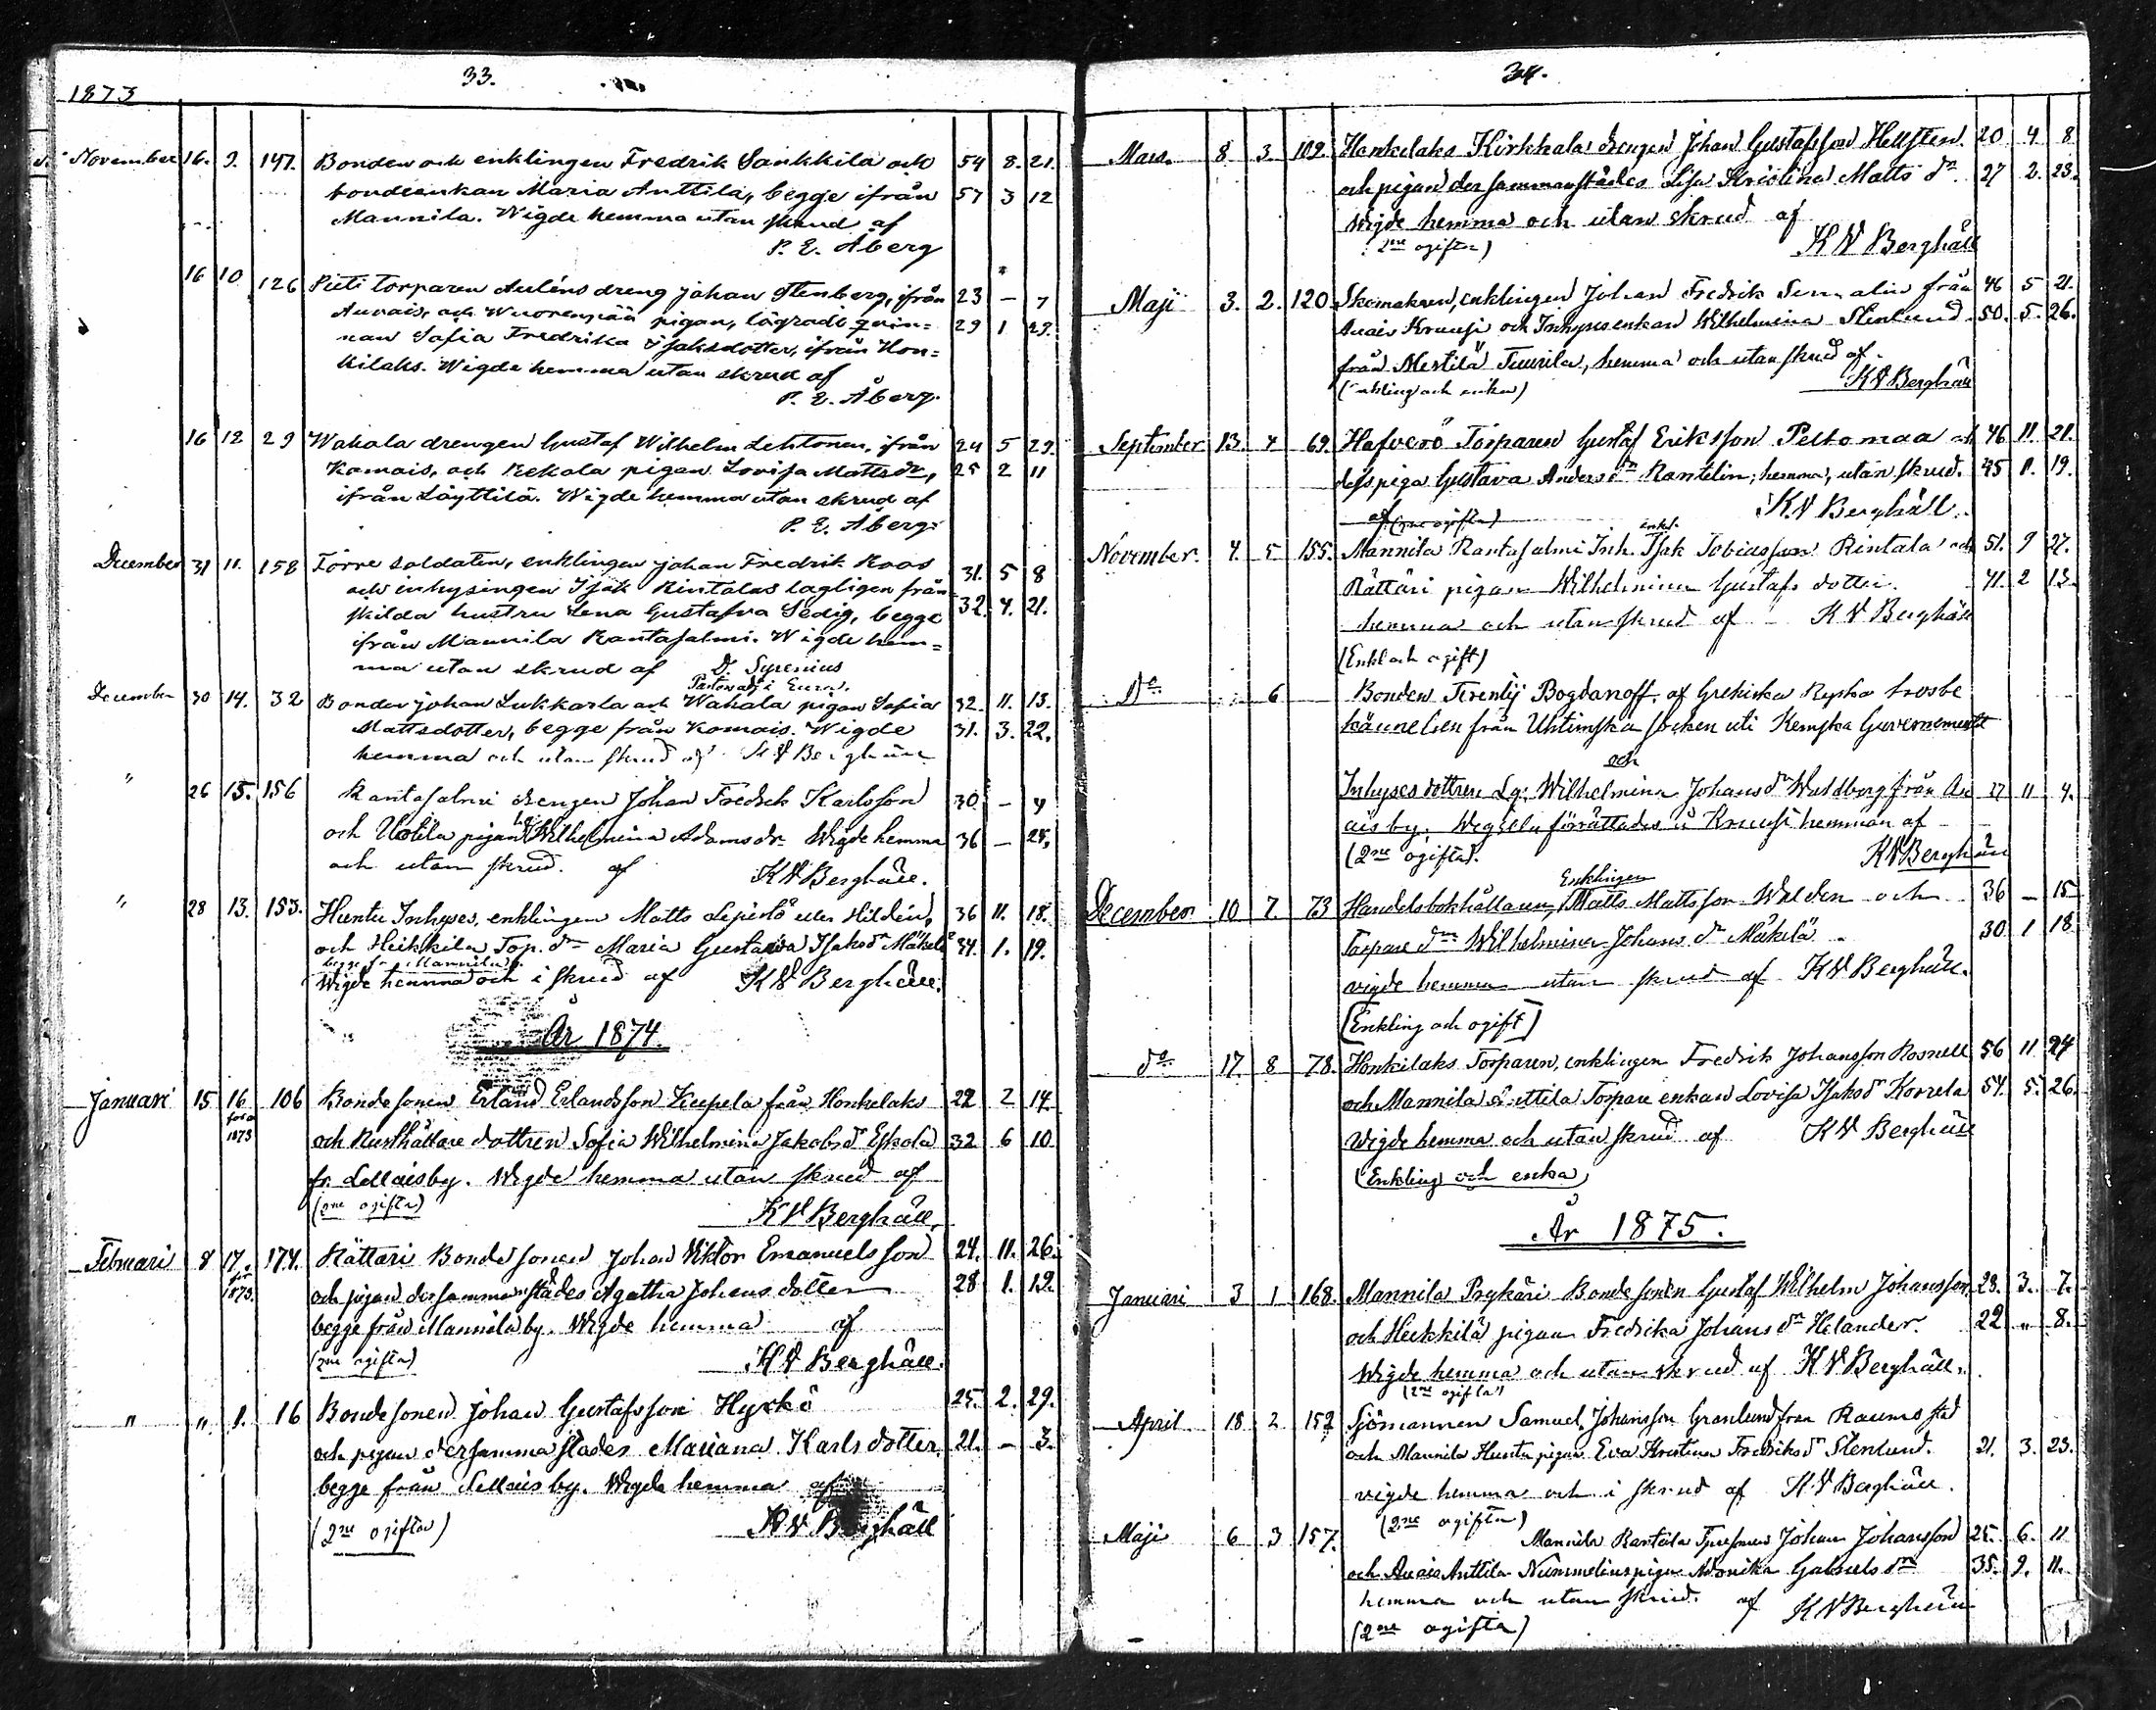 33.
1873
November 16. 9. 147. Bonden och enklingen Fredrik Sankkila och 54 8. 21.
bondeenkan Maria Anttila, begge ifrån 57 3 12
Mannila. Wigde hemma utan skrud af
P. E. Åberg
16 10 126 Pieti torparen Auléns dreng Johan Stenberg, ifrån 23 – 7
Auvais, och Wuorenpää pigan, lägrade qvin= 29 1 29.
nan Sofia Fredrika Isaksdotter, ifrån Hon=
kilaks. Wigde hemma utan skrud af
P. E. Åberg.
16 12 29 Wahala drengen Gustaf Wilhelm Lehtonen, ifrån 24 5 29.
Kamais, och Kekala pigan Lovisa Mattsdr, 25 2 11
ifrån Löyttilä. Wigde hemma utan skrud af
P. E. Åberg.
December 31 11. 158 Förre soldaten, enklingen Johan Fredrik Roos 31. 5 8
och inhysingen Isak Rintalas lagligen från
skilda hustru Lena Gustafva Sedig, begge 32. 4. 21.
ifrån Mannila Rantasalmi. Wigde hem=
ma utan skrud af D. Syrenius
Pastorsadj. i Eura.
December 30 14. 32 Bonden Johan Lukkarla och Wahala pigan Sofia 32. 11. 13.
Mattsdotter, begge från Komais. Wigde 31. 3. 22.
hemma och utan skrud af K V Berghäll
" 26 15. 156 Rantasalmi drengen Johan Fredrik Karlsson 30 – 4
och Uotila pigan Wilhelmina Adamsdr Wigde hemma 36 – 25,
och utan skrud. af K V Berghäll.
" 28 13. 153. Huntu Inhyses, enklingen Matts Lepistö eller Hildén, 36 11. 18.
och Heikkila Torp. dr Maria Gustava Isaksdr Mäkelä 34. 1. 19.
begge fr Mannila
Wigde hemma och i skrud af K V Berghäll.
År 1874.
Januari 15 16 106 Bondesonen Erland Erlandsson Keepela från Honkelaks 22 2 14.
för
1873
och Rusthållare dottren Sofia Wilhelmina Jakobsdr Eskola 32 6 10
fr. Lellaisby. Wigde hemma utan skrud af
(2ne ogifta)
K V Berghäll.
Februari 8 17. 174. Rättäri Bondesonen Johan Viktor Emanuelsson 24. 11. 26.
för
1873.
och pigan dersammanstädes Agatha Johansdotter 28 1. 12.
begge från Mannila by. Wigde hemma af
(2ne ogifta)
K V Berghäll.
" " 1. 16 Bondesonen Johan Gustafsson Hyrkö 25. 2. 29.
och pigan dersammastädes Mariana Karlsdotter 21. – 3.
begge från Sellais by. Wigde hemma af
(2ne ogifta) K V Berghäll
34.
Mars. 8 3. 109. Honkilaks Kirkkala drengen Johan Gustafsson Hellsten. 20 4 8
och pigan dersammanstädes Lisa Kristina Matts dr. 27 2. 23.
Wigde hemma och utan skrud af
(2ne ogifta) K V Berghäll
Maji 3. 2. 120 Skomakaren, enklingen Johan Fredrik från 46 5 21.
Auais Kruusi och Inhysesenkan Wilhelmina Stenlund 50. 5. 26.
från Mestilä Tuurila, hemma och utan skrud af.
(enkling och enka) K V Berghäll
September 13. 4 69. Hafverö Torparen Gustaf Eriksson Peltomaa och 46 11. 21.
dess piga Gustava Andersdr Rantelin, hemma, utan skrud. 45 11. 19.
af (2ne ogifta) K V Berghäll.
enkl.
November. 4. 5 155. Mannila Rantasalmi Inh. Isak Tobiasson Rintala och 51. 9 27.
Rättäri pigan Wilhelmina Gustafs dotter. 41. 2 13.
hemma och utan skrud af K V Berghäll
(Enkl och ogift)
Do 6 Bonden Terentij Bogdanoff af Grekiska Ryska trosbe
kännelsen från Uhtimska socken uti Kemska Guvernementet
och
Inhyses dottren Lg. Wilhelmina Johansdr Waldberg från Au 27 11 4.
ais by. Wigseln förrättades å Kruusi hemman af
(2ne ogifta). K V Berghäll
Enklingen
December 10 7. 73 Handelsbokhållaren, Matts Mattsson Walden och 36 – 15
Torpare drn Wilhelmina Johans dr Mäkelä 30 1 18
vigde hemma utan skrud af K V Berghäll.
[Enkling och ogift]
do 17. 8 78. Honkilaks Torparen, enklingen Fredrik Johansson Rosnell 56 11 24
och Mannila Anttila Torpare enkan Lovisa Isaksdr Korrela 54. 5. 26.
Wigde hemma och utan skrud af K V Berghäll
(Enkling och enka)
År 1875.
Januari 3 1 168. Mannila Prykäri Bondesonen Gustaf Wilhelm Johansson 23. 3. 7.
och Heikkilä pigan Fredrika Johans dr Helander. 22 " 8.
Wigde hemma och utan skrud af K V Berghäll.
(2ne ogifta)
April 18 2 152 Sjömannen Samuel Johansson Granlund från Raumo stad
och Mannila Huntu pigan Eva Kristina Fredriksdr Stenlund. 21. 3. 23.
vigde hemma och i skrud af K V Berghäll.
(2ne ogifta)
Maji 6 3 157. Mannila Rantala Johan Johansson 25. 6. 11
och Auais Anttila Nummelins pigan Monika Gabriels drn 35. 9. 11.
hemma och utan skrud. af K V Berghäll
(2ne ogifta)